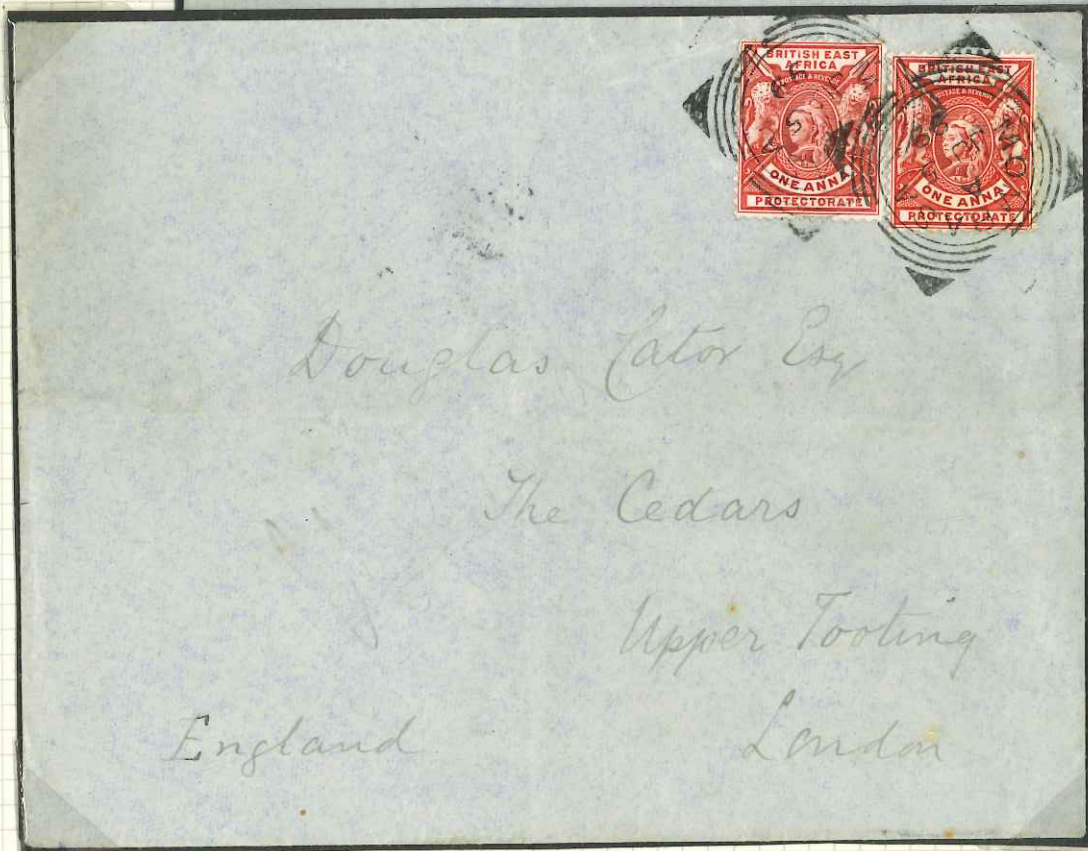 BRITISH EAST
AFRICA
POSTAGE & REVENUE
ONE ANNA
PROTECTORATE
BRITISH EAST
AFRICA
POSTAGE & REVENUE
ONE ANNA
PROTECTORATE
Douglas Cator Esq
The Cedars
Upper Tooting
London
England